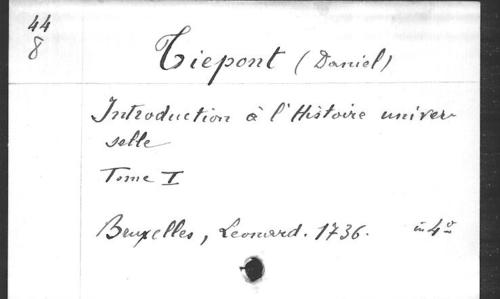 44
8
Tiepont (Daniel)
Introduction à l'Histoire univer-
selle
Tome I
Bruxelles, Leonard. 1736. in 4º